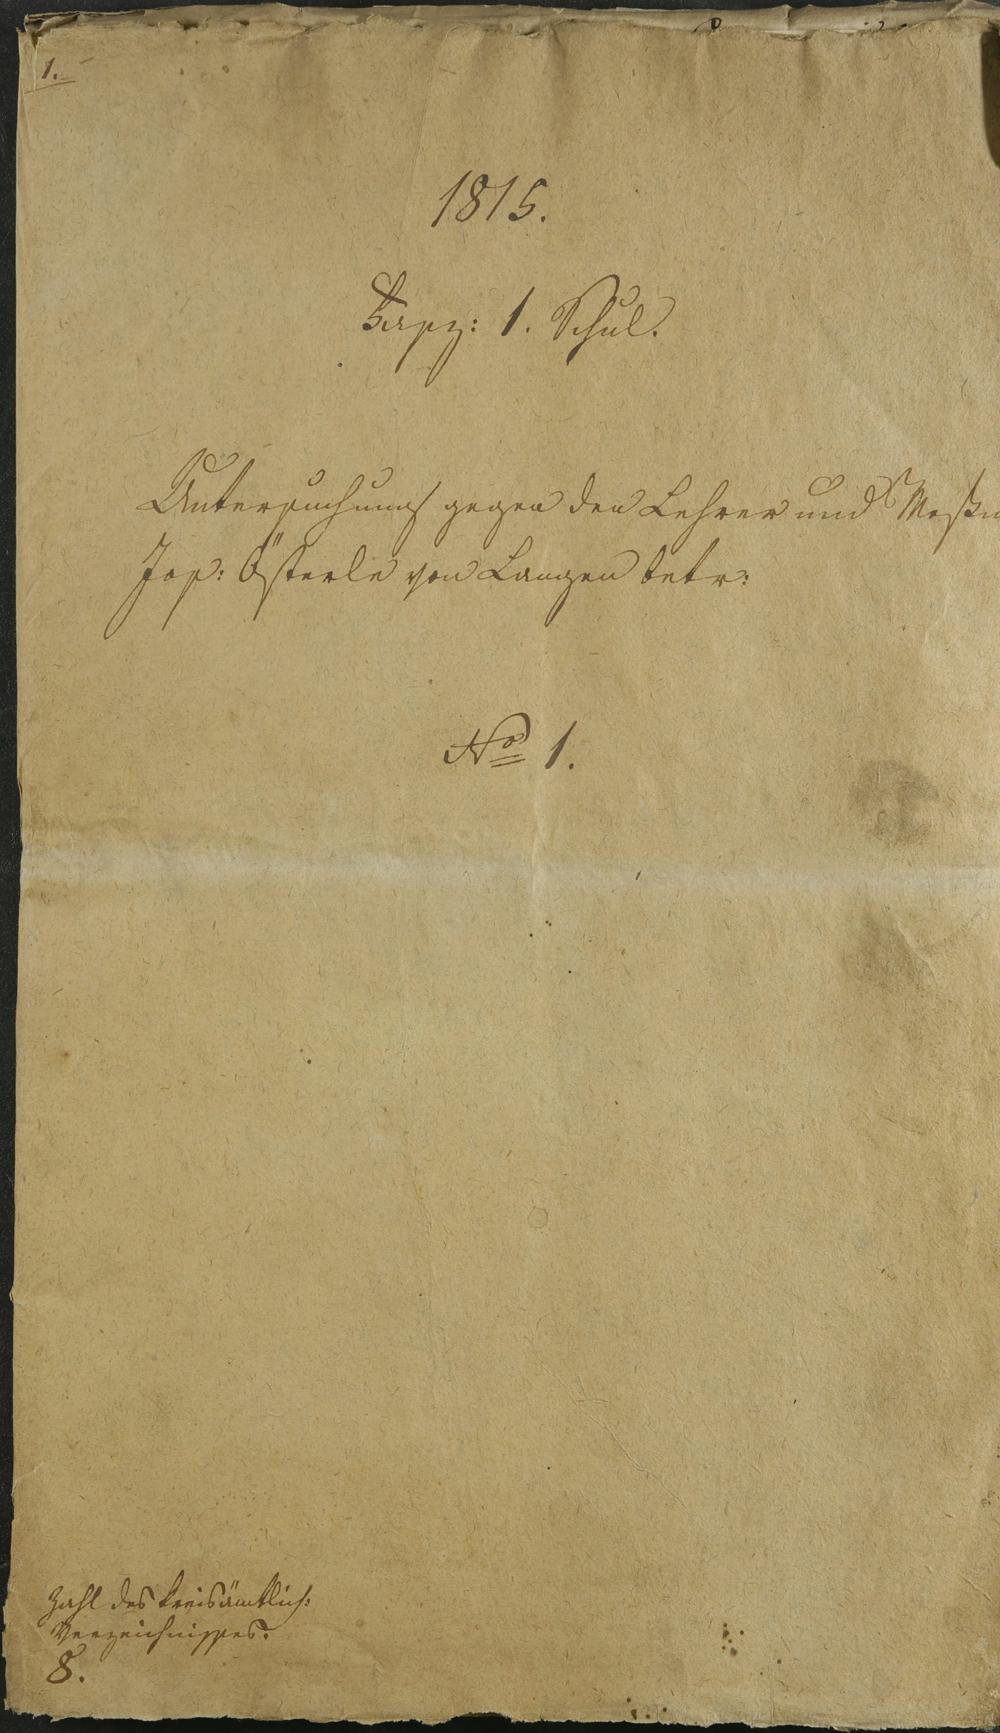 1.
1815.
Fasz: 1. Schul.
Untersuchung gegen den Lehrer und Meßn
Jos: Österle von Langen betr:
No 1.
Zahl des kreisämtlich:
Verzeichnisses.
8.